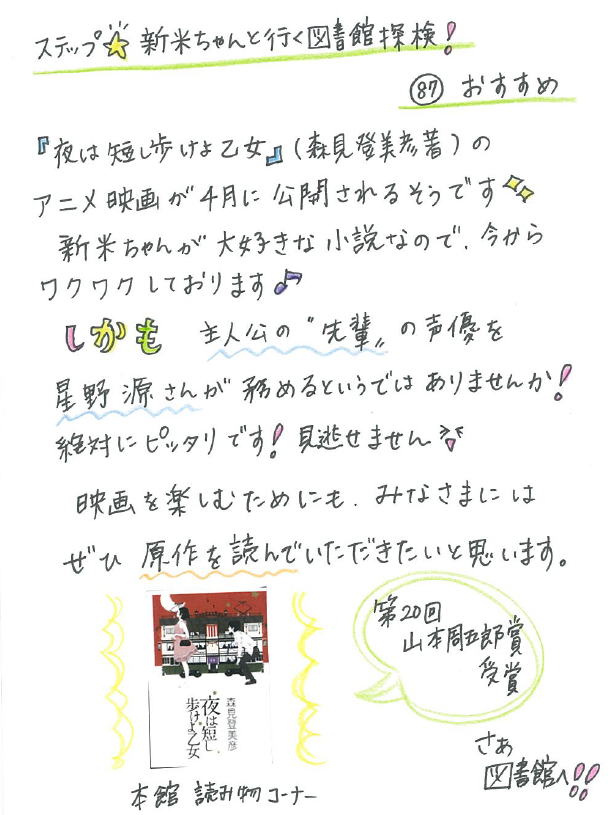 ステップ☆新米ちゃんと行く図書館探検!
㊇ おすすめ
『夜は短し歩けよ乙女』(森見登美彦著)の
アニメ映画が4月に公開されるそうです
新米ちゃんが大好きな小説なので、今から
ワクワクしております♪
しかも 主人公の〝先輩〟の声優を
星野源さんが務めるというではありませんか!
絶対にピッタリです!見逃せません
映画を楽しむためにも、みなさまには
ぜひ 原作を読んでいただきたいと思います。
第20回
山本周五郎賞
受賞
森見登美彦
夜は短し
歩けよ乙女
本館 読み物コーナー
さあ
図書館へ!!